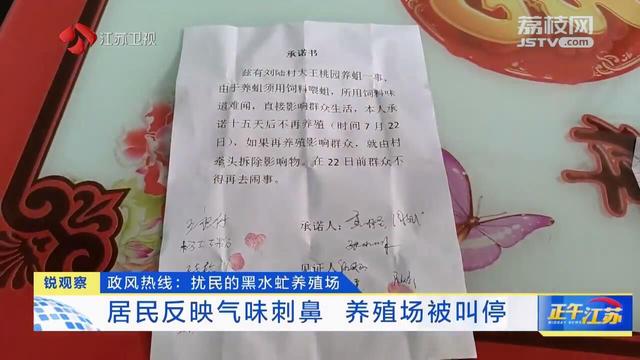 江苏卫视
荔枝网
JSTV.com
承诺书
兹有刘陆村大王桃园养蛆一事，
由于养蛆须用饲料喂蛆，所用饲料味
道难闻，直接影响群众生活，本人承
诺十五天后不再养殖（时间7月22
日），如果再养殖影响群众，就由村
牵头拆除影响物。在22日前群众不
得再去闹事。
承诺人：
见证人
锐观察
政风热线：扰民的黑水虻养殖场
居民反映气味刺鼻 养殖场被叫停
正午江苏